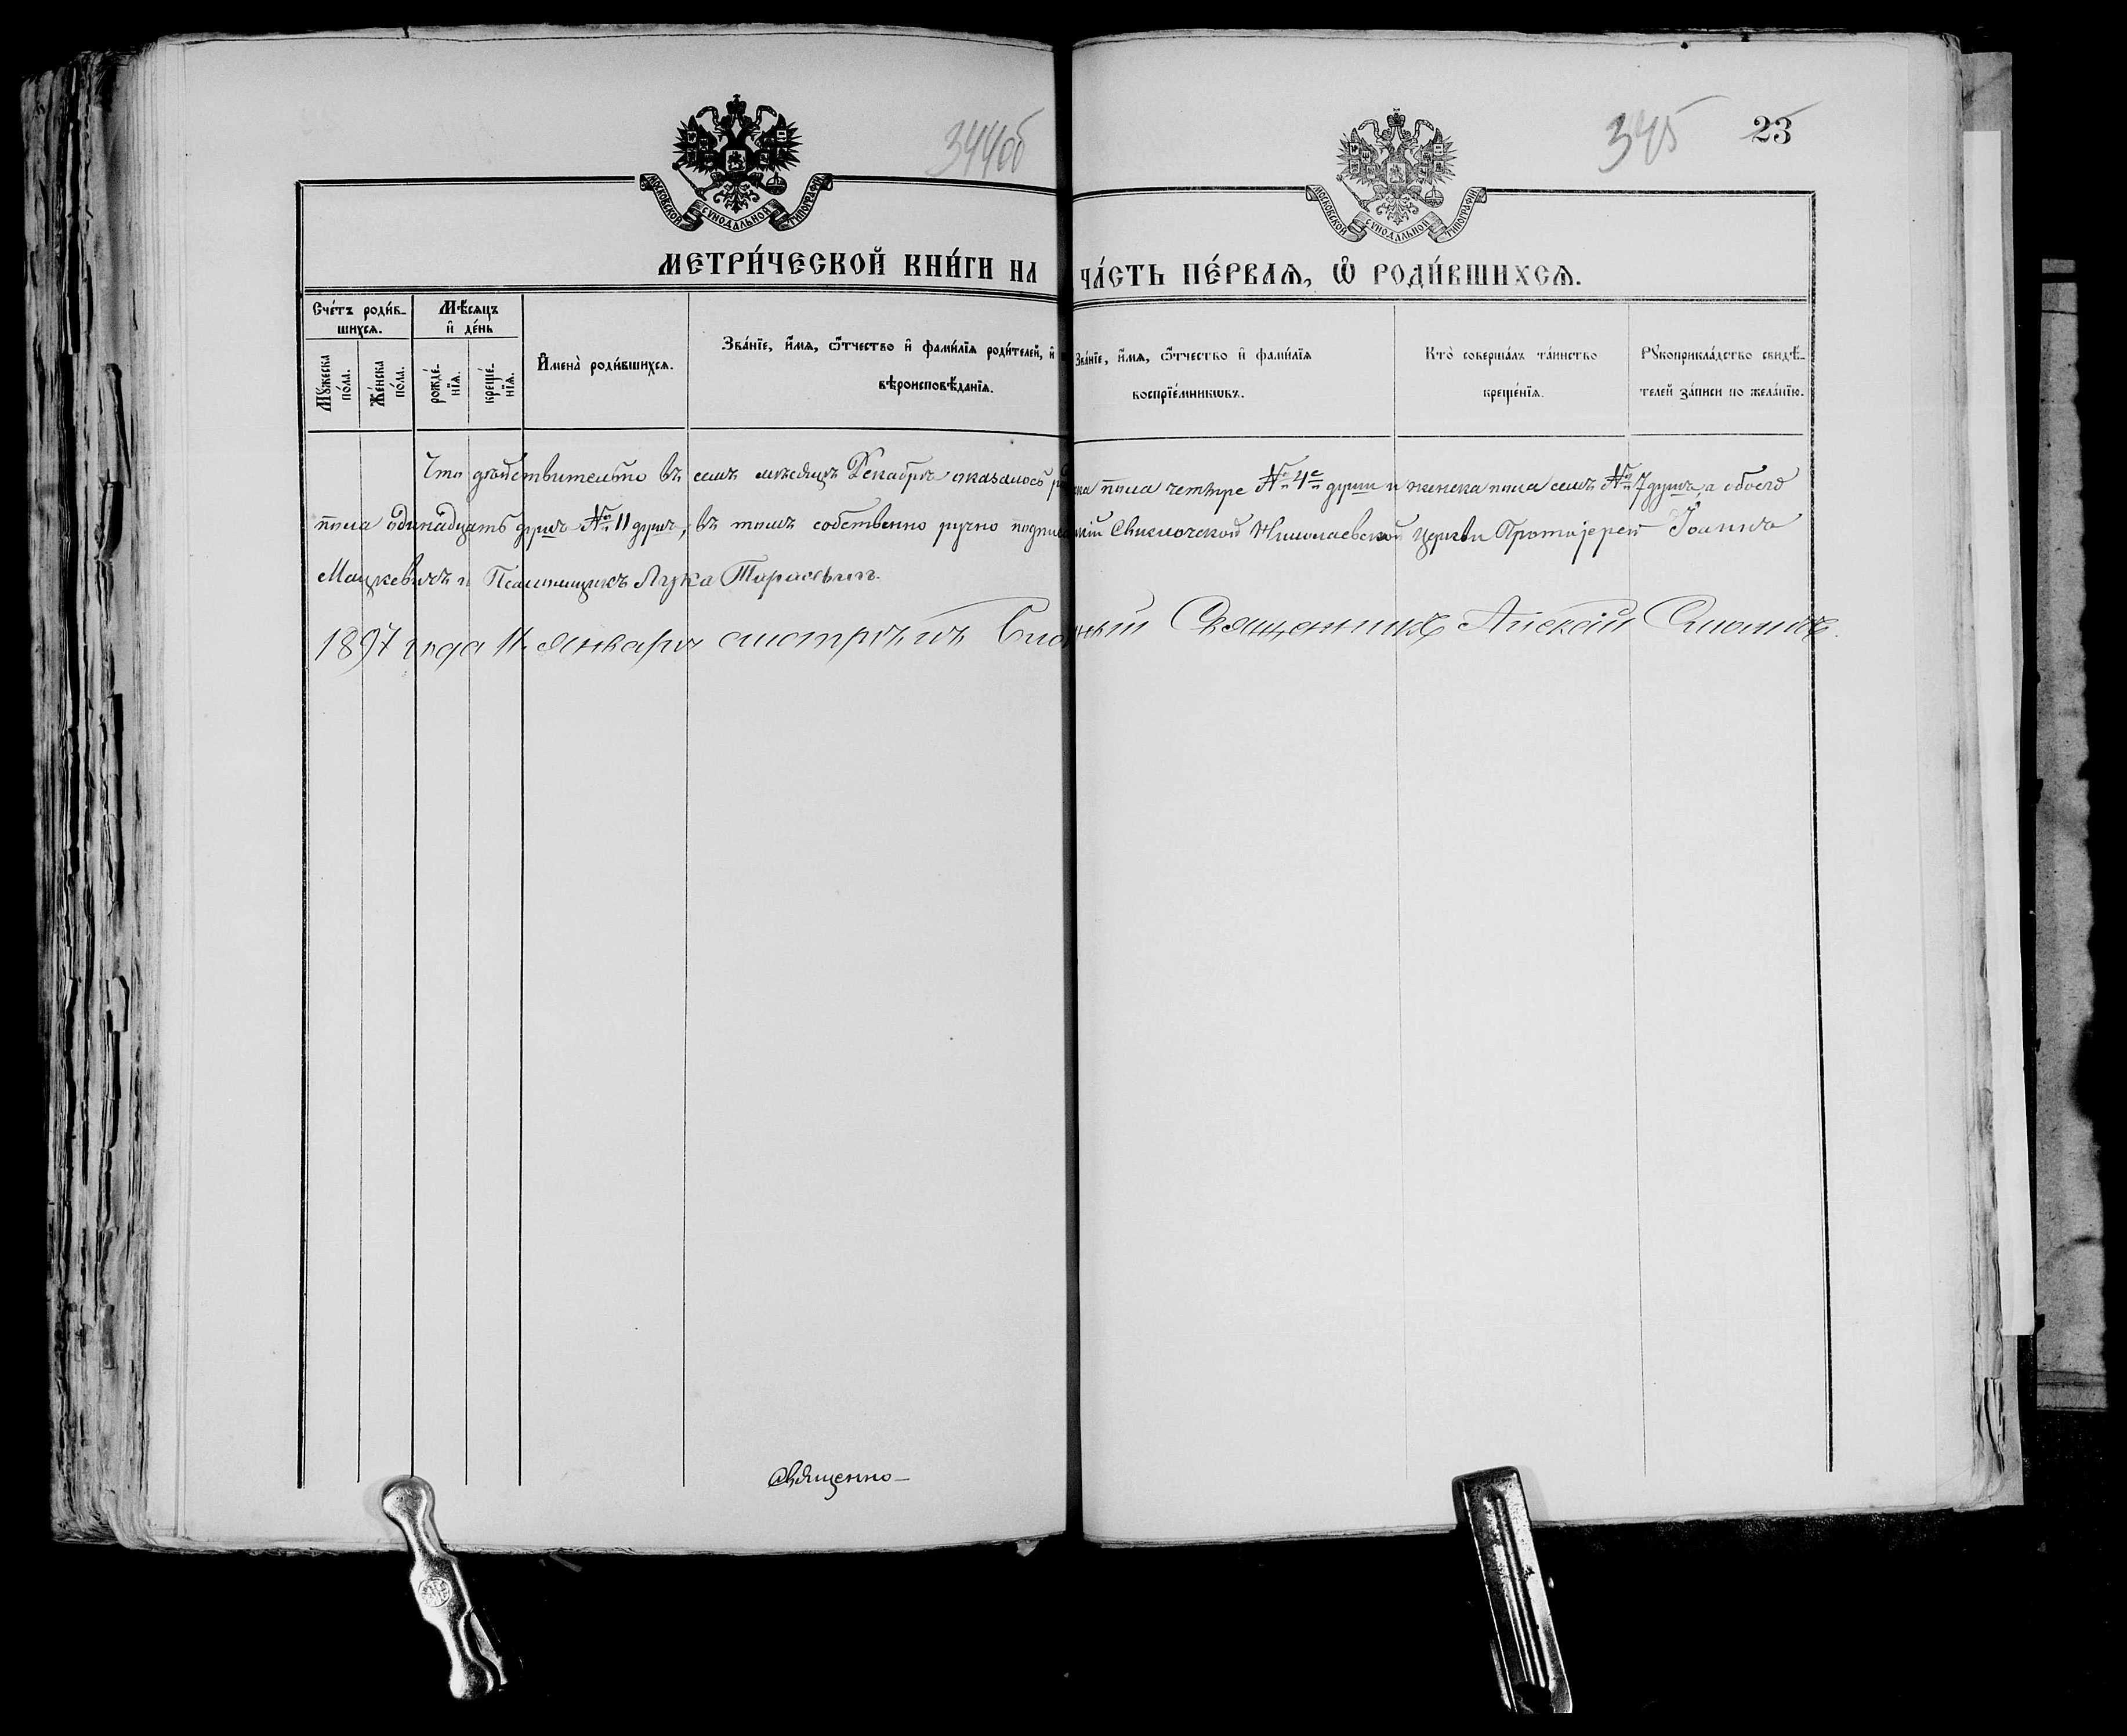 344об
345
23
МОСКОВСКОЙ СѴНОДАЛЬНОЙ ТИПОГРАФІИ
МОСКОВСКОЙ СѴНОДАЛЬНОЙ ТИПОГРАФІИ
МЕТРИ́ЧЕСКОЙ КНИ́ГИ НА ЧА́СТЬ ПЕ́РВАѦ, Ѽ РОДИ́ВШИХСѦ.
Сче́тъ роди́в-
шихсѧ.
Мѣ́сѧцъ
и҆ де́нь
Мꙋ́жеска по́ла.
Же́нска по́ла.
рожде́-нїѧ.
креще́-нїѧ.
И҆мена̀ роди́вшихсѧ.
Зва́нїе, и҆́мѧ, ѻ҆́тчество и҆ фами́лїѧ роди́телей, и҆
вѣроисповѣ́данїѧ.
Зва́нїе, и҆́мѧ, ѻ҆́тчество и҆ фами́лїѧ
воспрїе́мникѡвъ.
Кто̀ соверша́лъ та́инство
креще́нїѧ.
Рꙋкоприкла́дство свидѣ́-
телей за́писи по жела́нїю.
Что дѣйствительно въ семъ мѣсяцѣ Декабрѣ оказалось ска пола четыре № 4е души и женска пола семь № 7 душъ, а обоего
пола одинадцать душъ № 11 душъ, въ томъ собственно ручно Свислочской Николаевской церкви Протоіерей Іоаннъ
Мацкевичъ и Псаломщикъ Лука Тарасевичъ.
1897 года 11 января смотрѣлъ Священникъ
Священно-